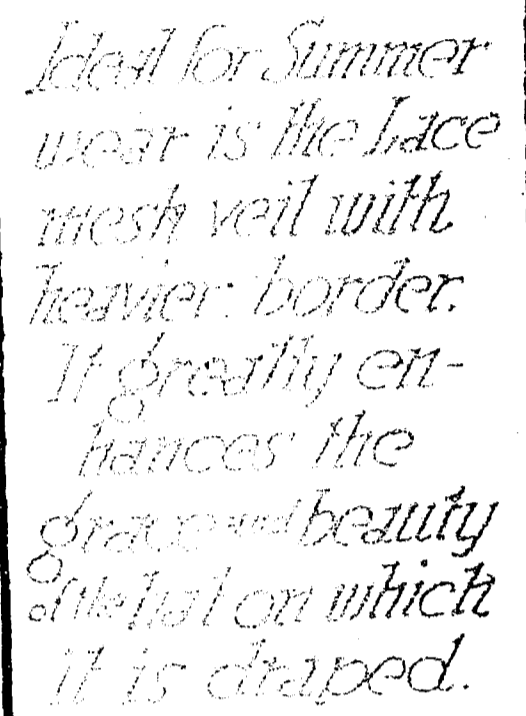 Ideal for Summer
wear is the Lace
mesh veil with
heavier border.
It greatly en-
hances the
grace and beauty
of the hat on which
it is draped.